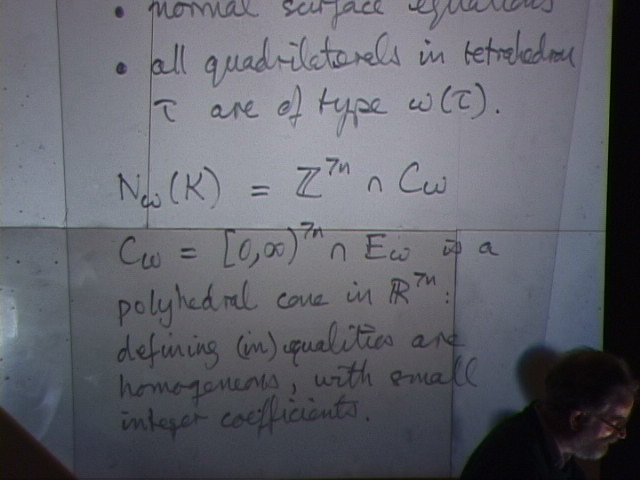 • normal surface equations
• all quadrilaterals in tetrahedron
τ are of type ω(τ).
N_ω(K) = ℤ^{7n} ∩ C_ω
C_ω = [0,∞)^{7n} ∩ E_ω is a
polyhedral cone in ℝ^{7n}:
defining (in)equalities are
homogeneous, with small
integer coefficients.